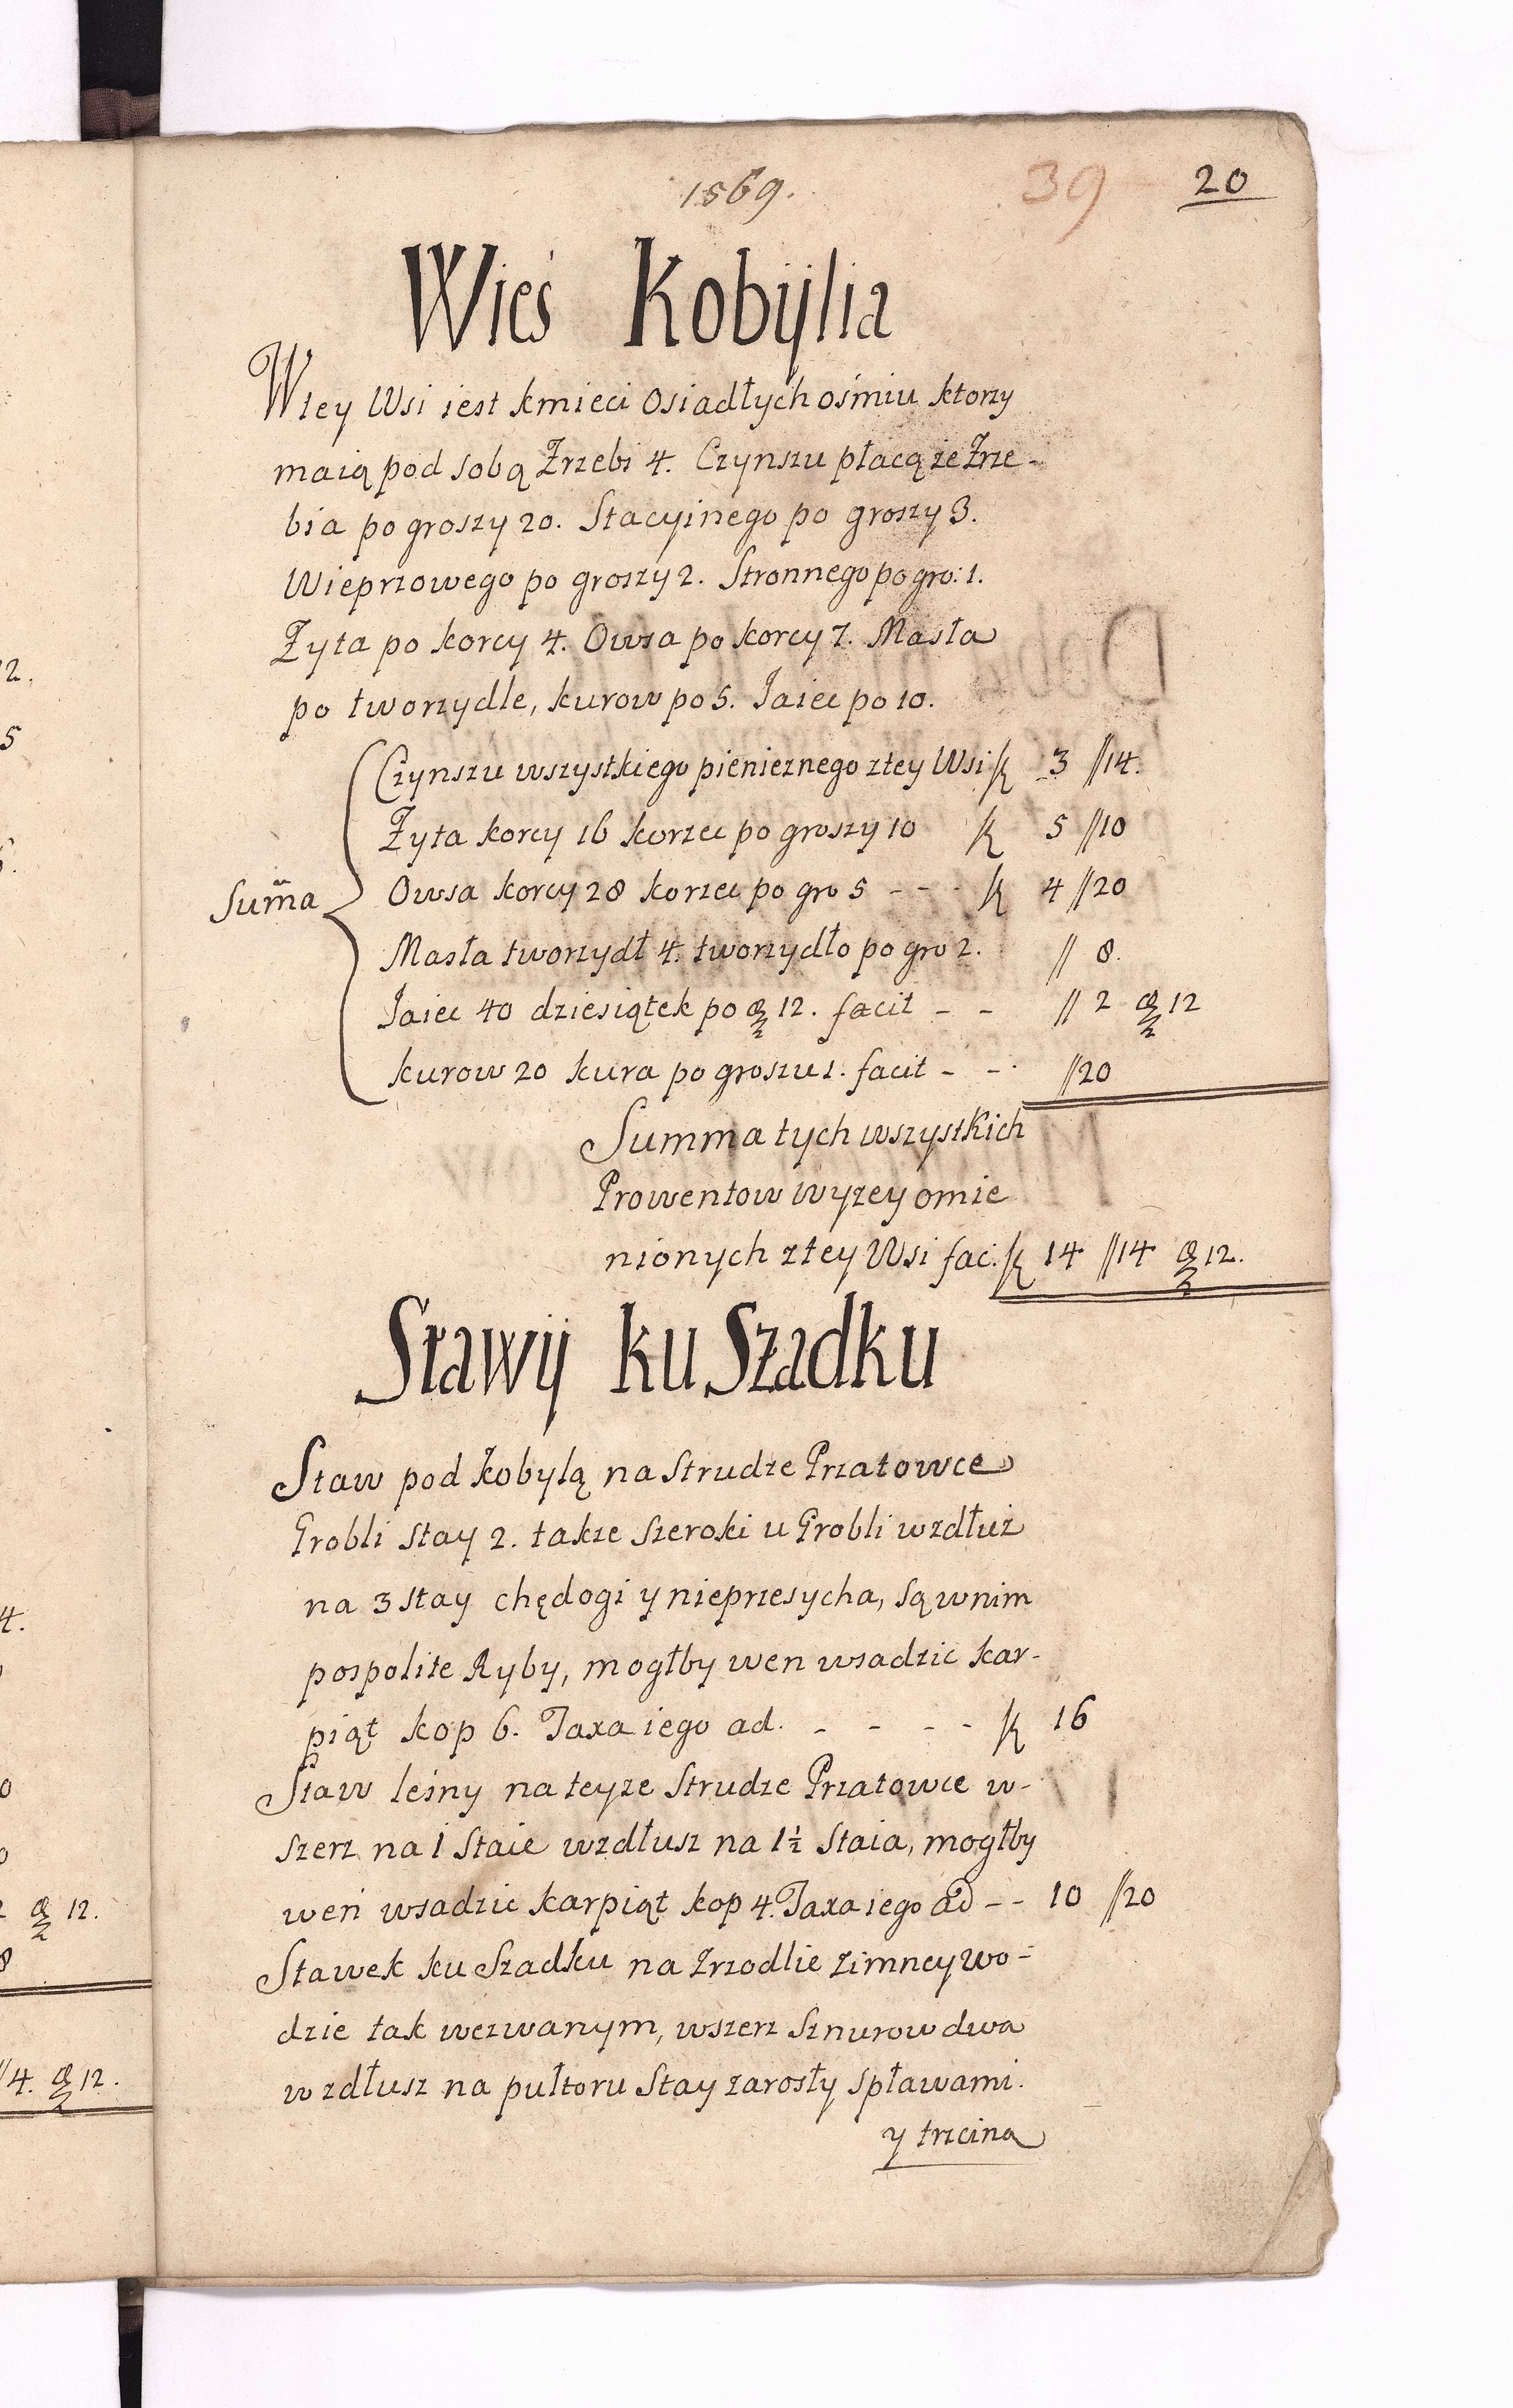 1569.
39
20
Wieś Kobÿlia
Wtey Wsi iest kmieci Osiadłych ośmiu ktorzy
maią pod sobą Zrzebi 4. Czynszu płacą ze Zrze-
bia po groszy 20. Stacyinego po groszy 3.
Wieprzowego po groszy 2. Stronnego po gro: 1.
Zyta po korcy 4. Owsa po korcy 7. Masła
po tworzydle, kurow po 5. Jaiec po 10.
Czynszu wszystkiego pienieznego ztey Wsi ꝶ 3 //14.
Zyta korcy 16 korzec po groszy 10 ꝶ 5 //10
Suma Owsa korcy 28 korzec po gro 5 - - - ꝶ 4 //20
Masła tworzydł 4. tworzydło po gro 2. // 8.
Jaiec 40 dziesiątek po 12. facit - - // 2 12
kurow 20 kura po groszu 1. facit - - //20
Summa tych wszystkich
Prowentow wyzey omie
nionych ztey Wsi fac: ꝶ 14 //14 12.
Stawÿ ku Szadku
Staw pod kobylą na Strudze Przatowce
Grobli stay 2. takze szeroki u Grobli wzdłuż
na 3 stay chędogi y nieprzesycha, są wnim
pospolite Ryby, mogłby wen wsadzic kar-
piąt kop 6. Taxa iego ad. - - - - ꝶ 16
Staw leśny na teyze Strudze Przatowce w-
szerz na 1 Staie wzdłusz na 1½ Staia, mogłby
weń wsadzic karpiąt kop 4. Taxa iego ad - - 10 //20
Stawek ku Szadku na Zrzodlie zimney wo-
dzie tak wezwanym, wszerz Sznurow dwa
wzdłusz na pułtoru Stay zarosły spławami.
y trzcina
2.
5
4.
0
12.
8
//4. 12.